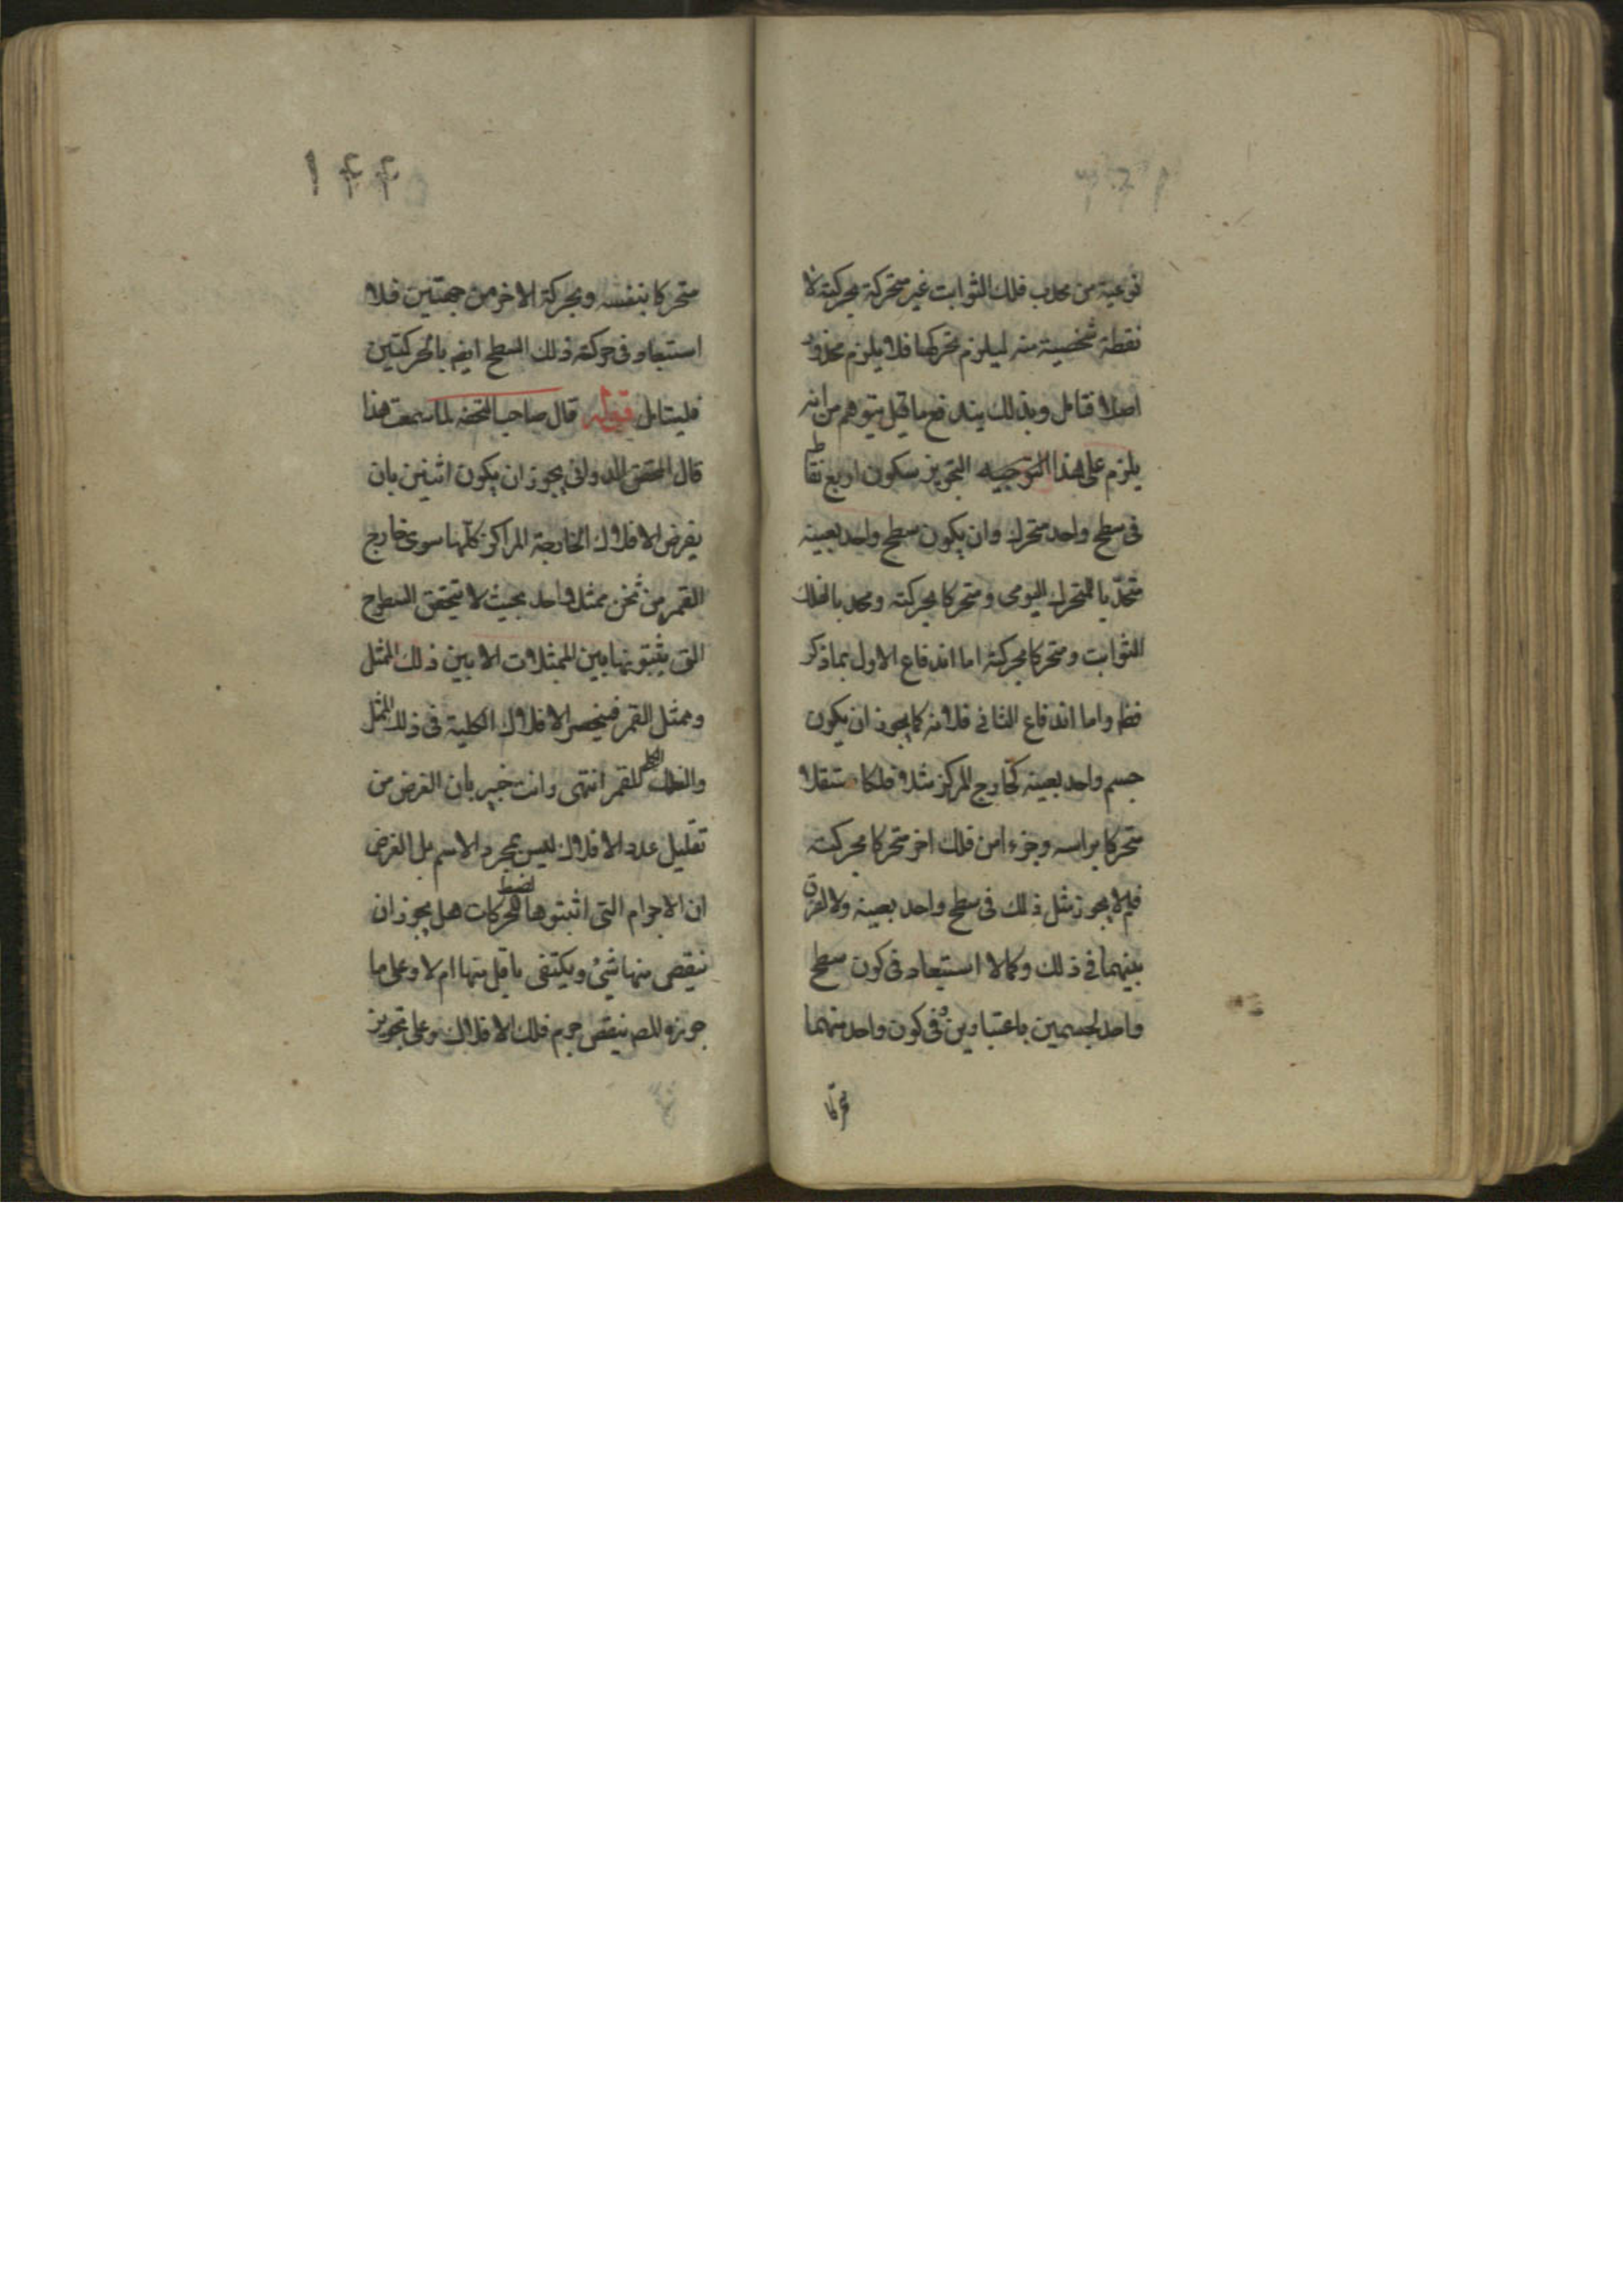 نوعية من محدب فلك الثوابت غير متحركة بحركته لا
نقطة شخصية منه ليلزم تحركها فلا يلزم محذور
اصلا فتامل وبذلك يندفع ما قيل يتوهم من انه
يلزم على هذا التوجيه التجويز سكون اربع نقاط
فى سطح واحد متحرك وان يكون سطح واحد بعينه
متحركا بحركته ومحدبا لفلك
الثوابت ومتحركا بحركته اما اندفاع الاول بما ذكر
فظ واما اندفاع الثانى فلانه كما يجوز ان يكون
جسم واحد بعينه كخارج المركز مثلا فلكا مستقلا
متحركا براسه وجزءا من فلك اخر متحركا بحركته
فلم لا يجوز مثل ذلك فى سطح واحد بعينه ولا الفرق
بينهما فى ذلك وكما لا استبعاد فى كون سطح
واحد لجسمين باعتبارين فى كون واحد منهما
متحركا بنفسه وبحركة الاخر من جهتين فلا
استبعاد فى حركة ذلك السطح ايضا بالحركتين
فليتامل قوله قال صاحب التحفه لما سمعت هذا
قال المحقق الدوانى يجوز ان يكون اثنين بان
يفرض الافلاك الخارجة المراكز كلها سوى خارج
القمر من ثخن ممثل واحد بحيث لا يتحقق السطوح
التى يثبتونها بين الممثلات الا بين ذلك الممثل
وممثل القمر فينحصر الافلاك الكلية فى ذلك الممثل
والفلك الكلى للقمر انتهى وانت خبير بان الغرض من
تقليل عدد الافلاك ليس بمجرد الاسم بل الغرض
ان الاجرام التى اثبتوها لضبط الحركات هل يجوز ان
ينقص منها شىء ويكتفى باقل منها ام لا وعلى ما
جوزه المص ينقص جرم فلك الافلاك وعلى تجويز
١۴۴